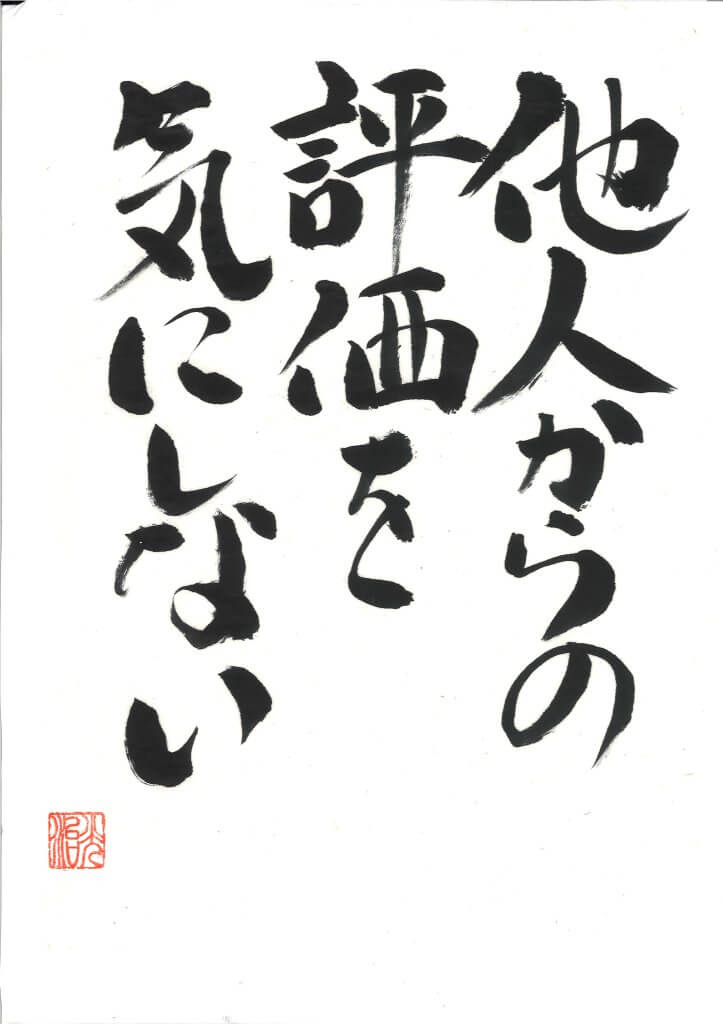 他人からの
評価を
気にしない